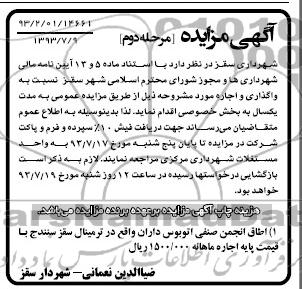 ۹۳/۲/۰۱/۱۴۶۶۱
۱۳۹۳/۷/۹
آگهی مزایده [مرحله دوم]
شهرداری سقز در نظر دارد با استناد ماده ۵ و ۱۳ آیین نامه مالی
شهرداری ها و مجوز شورای محترم اسلامی شهر سقز نسبت به
واگذاری و اجاره مورد مشروحه ذیل از طریق مزایده عمومی به مدت
یکسال به بخش خصوصی اقدام نماید. لذا بدینوسیله به اطلاع عموم
متقاضیان می‌رساند جهت دریافت فیش ۱۰٪ سپرده و فرم و پاکت
شرکت در مزایده تا پایان پنج شنبه مورخ ۹۳/۷/۱۷ به واحد
مستغلات شهرداری مرکزی مراجعه نمایند. لازم به ذکر است
بازگشایی درخواستها رسیده در ساعت ۱۲ روز شنبه مورخ ۹۳/۷/۱۹
خواهد بود.
هزینه چاپ آگهی مزایده برعهده برنده مزایده می‌باشد.
۱) اطاق انجمن صنفی اتوبوس داران واقع در ترمینال سقز سنندج با
قیمت پایه اجاره ماهانه ۱۵۰۰/۰۰۰ ریال
ضیاالدین نعمانی – شهردار سقز